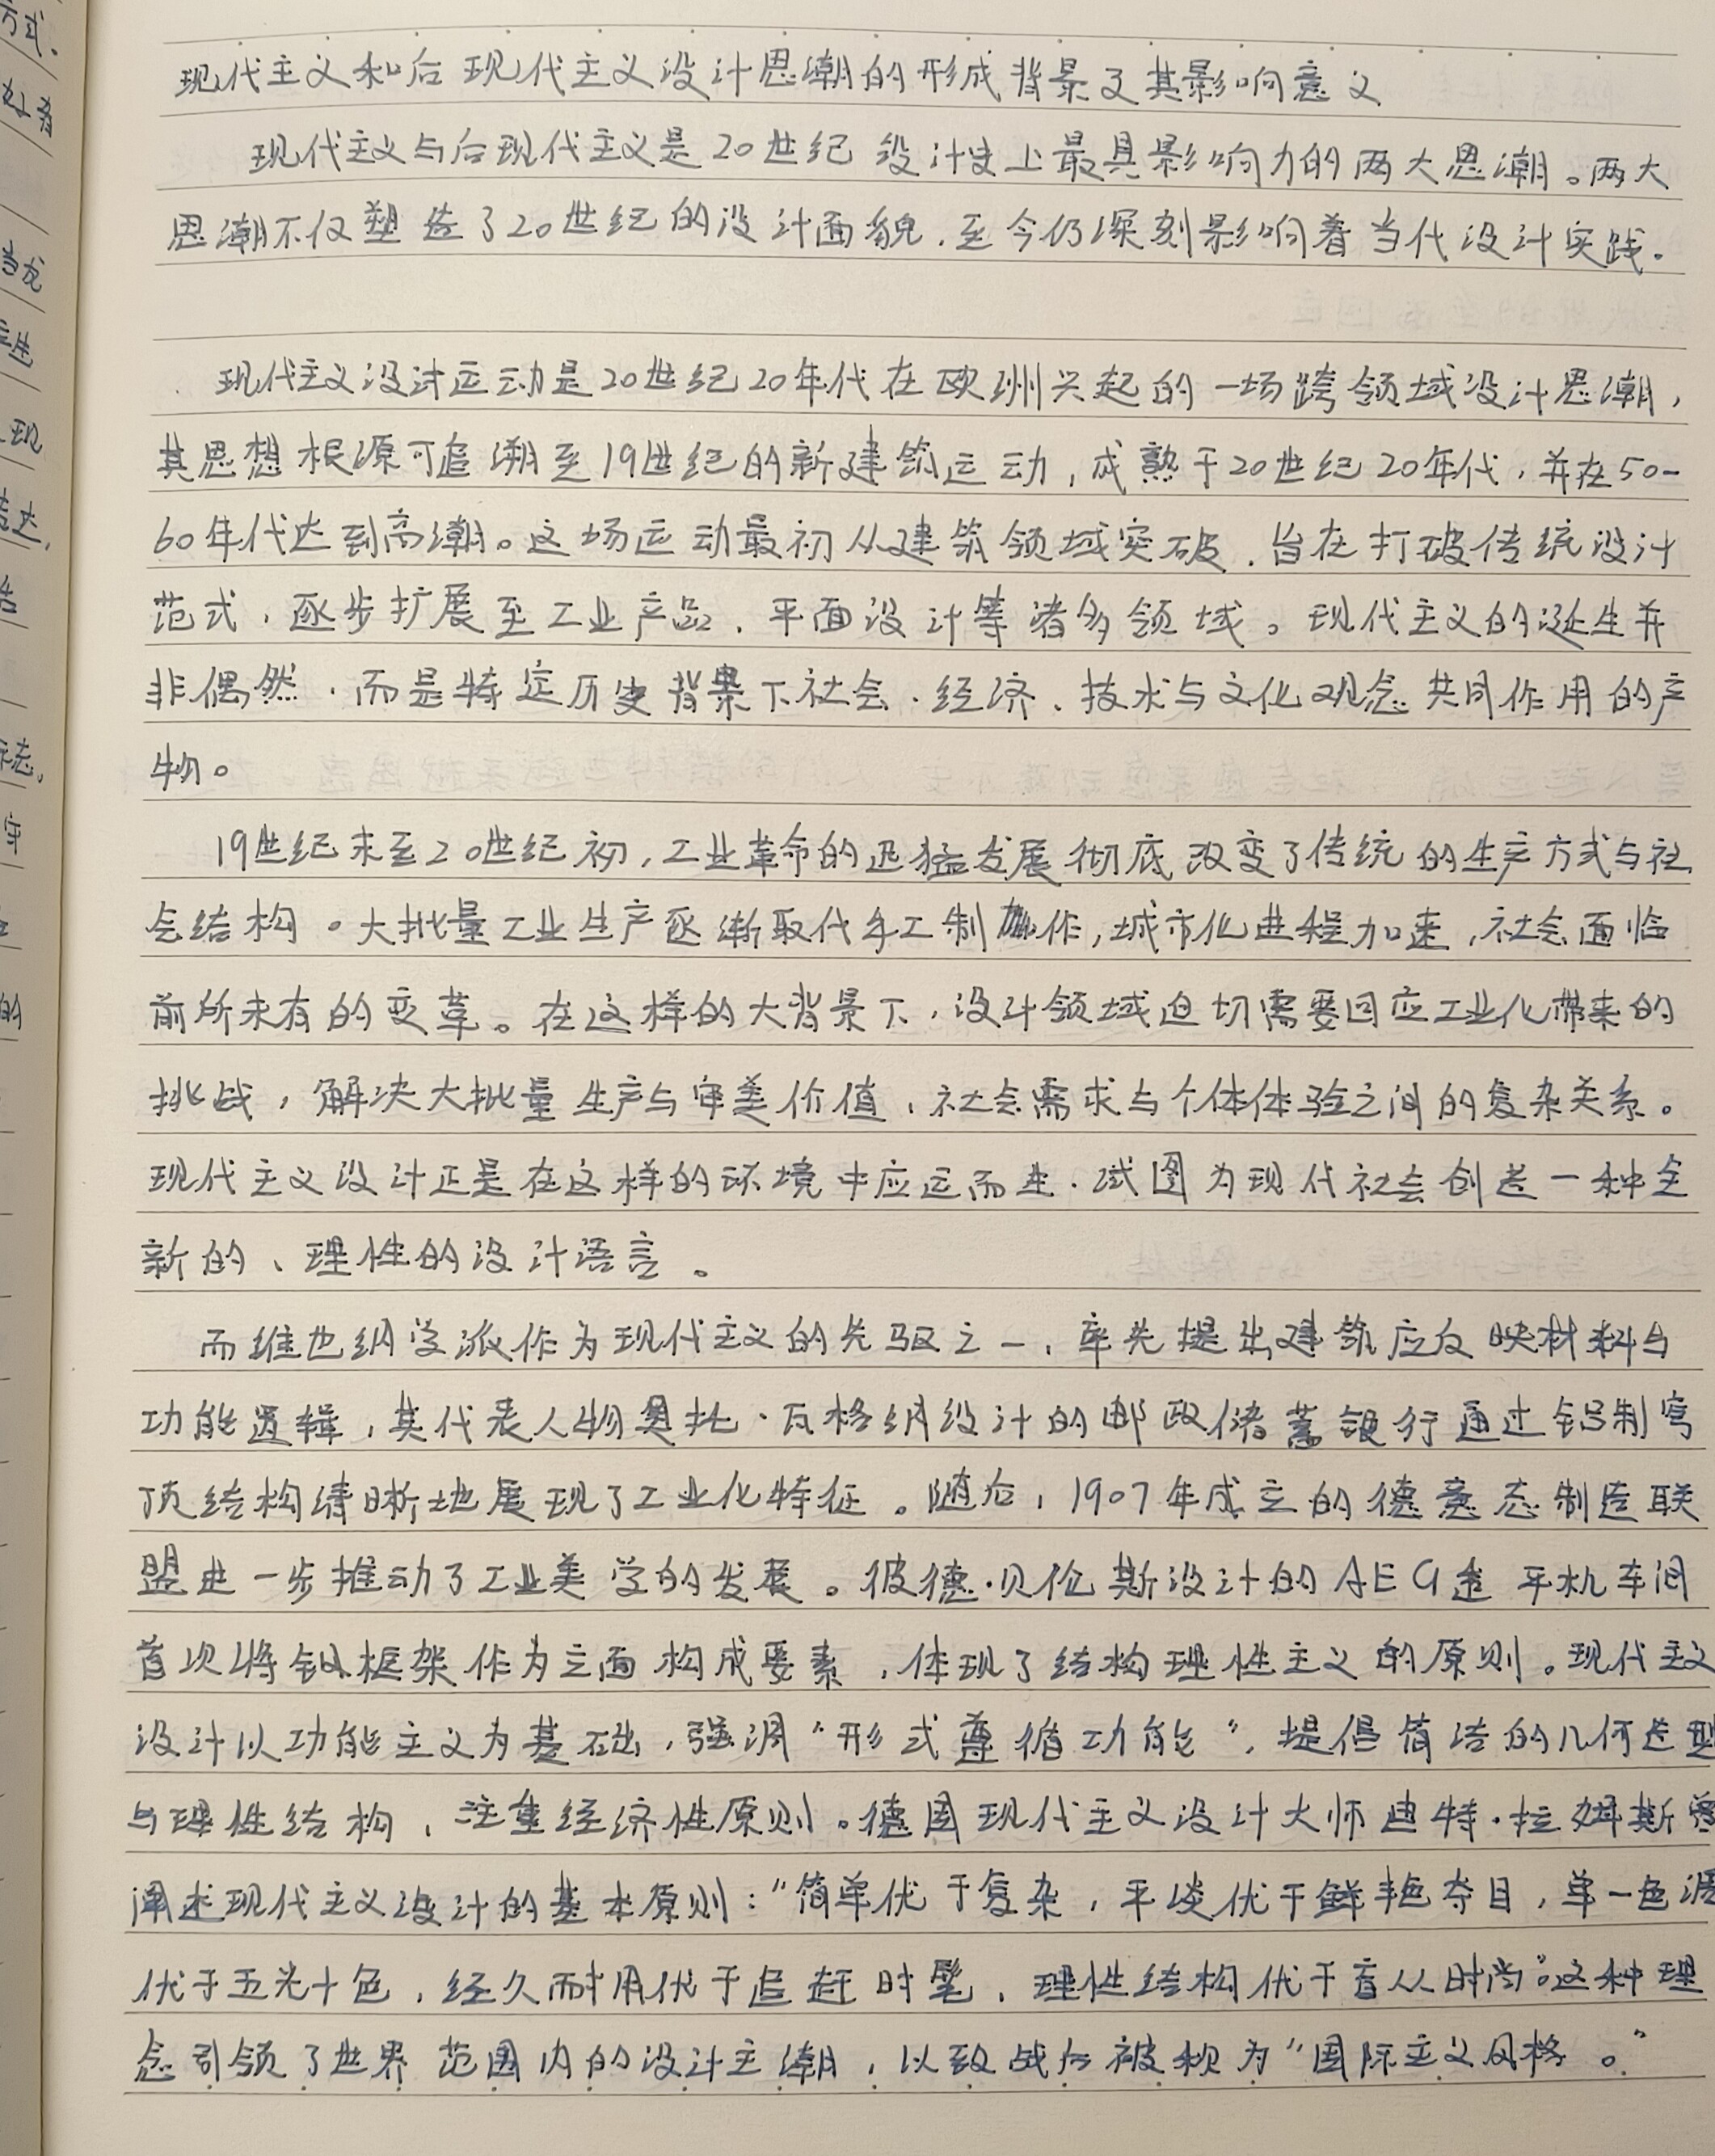 现代主义和后现代主义设计思潮的形成背景及其影响意义
现代主义与后现代主义是20世纪设计史上最具影响力的两大思潮。两大
思潮不仅塑造了20世纪的设计面貌，至今仍深刻影响着当代设计实践。
现代主义设计运动是20世纪20年代在欧洲兴起的一场跨领域设计思潮，
其思想根源可追溯至19世纪的新建筑运动，成熟于20世纪20年代，并在50-
60年代达到高潮。这场运动最初从建筑领域突破，旨在打破传统设计
范式，逐步扩展至工业产品、平面设计等诸多领域。现代主义的诞生并
非偶然，而是特定历史背景下社会、经济、技术与文化观念共同作用的产
物。
19世纪末至20世纪初，工业革命的迅猛发展彻底改变了传统的生产方式与社
会结构。大批量工业生产逐渐取代手工制作，城市化进程加速，社会面临
前所未有的变革。在这样的大背景下，设计领域迫切需要回应工业化带来的
挑战，解决大批量生产与审美价值、社会需求与个体体验之间的复杂关系。
现代主义设计正是在这样的环境中应运而生，试图为现代社会创造一种全
新的、理性的设计语言。
而维也纳学派作为现代主义的先驱之一，率先提出建筑应反映材料与
功能逻辑，其代表人物奥托·瓦格纳设计的邮政储蓄银行通过铝制穹
顶结构清晰地展现了工业化特征。随后，1907年成立的德意志制造联
盟进一步推动了工业美学的发展。彼德·贝伦斯设计的AEG透平机车间
首次将钢框架作为立面构成要素，体现了结构理性主义的原则。现代主义
设计以功能主义为基础，强调“形式尊循功能”，提倡简洁的几何造型
与理性结构，注重经济性原则。德国现代主义设计大师迪特·拉姆斯曾
阐述现代主义设计的基本原则：“简单优于复杂，平淡优于鲜艳夺目，单一色调
优于五光十色，经久耐用优于追赶时髦，理性结构优于盲从时尚”。这种理
念引领了世界范围内的设计主潮，以致战后被称为“国际主义风格。”